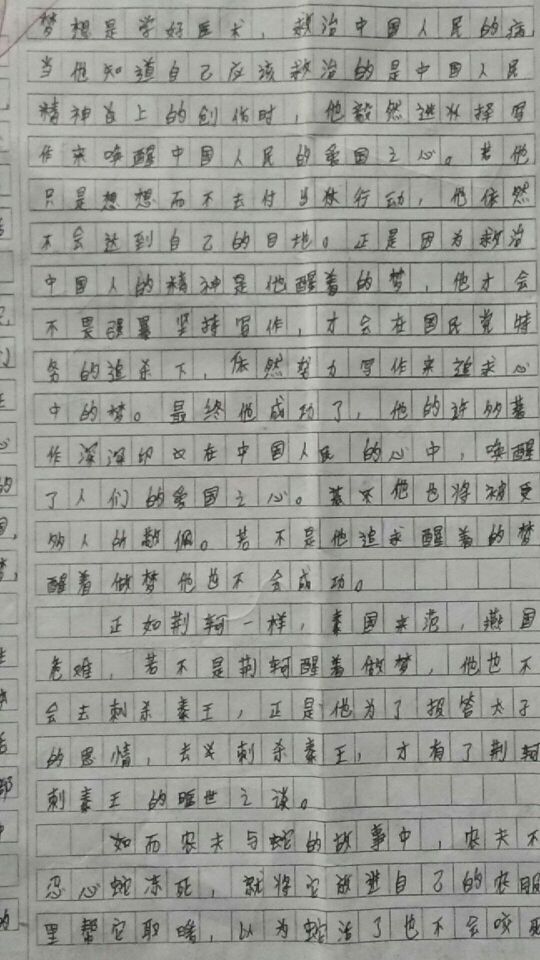 梦想是学好医术，救治中国人民的病，
当他知道自己应该救治的是中国人民
精神当上的创伤时，他毅然选择写
作来唤醒中国人民的爱国之心。若他
只是想想而不去付出执行动，他依然
不会达到自己的目地。正是因为救治
中国人的精神是他醒着的梦，他才会
不畏强暴坚持写作，才会在国民党特
务的追杀下，依然努力写作来追求心
中的梦。最终他成功了，他的许多著
作深深印在中国人民的心中，唤醒
了人们的爱国之心。他也将被更
多人所敬佩。若不是他追求醒着的梦
醒着做梦他也不会成功。
正如荆轲一样，秦国来范，燕国
危难，若不是荆轲醒着做梦，他也不
会去刺杀秦王，正是他为了报答太子
的恩情，去刺杀秦王，才有了荆轲
刺秦王的旷世之谈。
如而农夫与蛇的故事中，农夫不
忍心蛇冻死，就将它放进自己的衣服
里帮它取暖，以为蛇活了也不会咬死